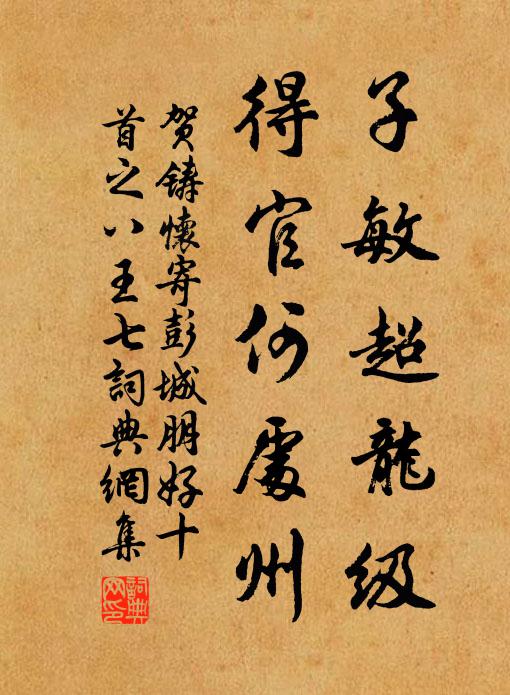 子敏超龍级
得官何處州
贺鑄懷寄彭城朋好十
首之八王七詞典網集
詞典网印